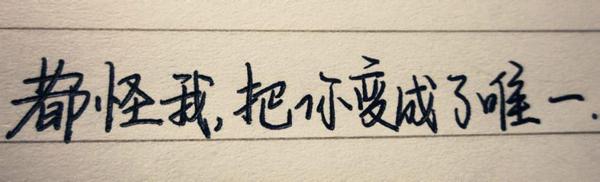 都怪我,把你变成了唯一.